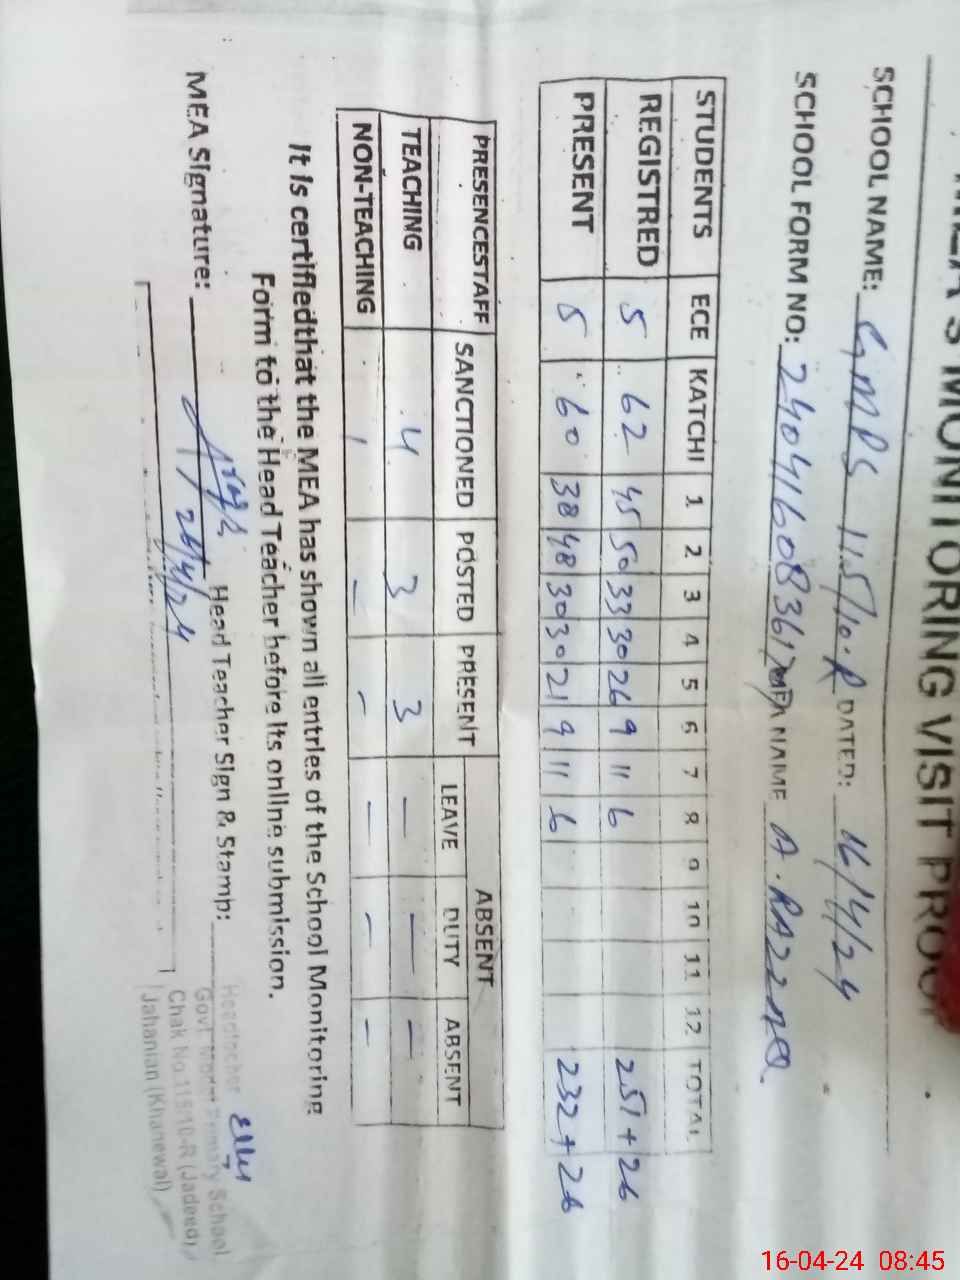 MEA'S MONITORING VISIT PROOF
SCHOOL NAME: GMPS 115/10-R DATED: 16/4/24
SCHOOL FORM NO: MEA NAME A. RAZZAQ
STUDENTS ECE KATCHI 1 2 3 4 5 6 7 8 9 10 11 12 TOTAL
REGISTRED 5 62 45 50 33 30 26 9 11 6 251+26
PRESENT 5 60 38 48 30 30 21 9 11 6 232+26
PRESENCESTAFF SANCTIONED POSTED PRESENT ABSENT
LEAVE DUTY ABSENT
TEACHING 4 3 3 — — —
NON-TEACHING 1 — — — — —
It is certifiedthat the MEA has shown all entries of the School Monitoring
Form to the Head Teacher before its online submission.
MEA Signature: Head Teacher Sign & Stamp:
Headteacher
Govt. Model Primary School
Chak No.115/10-R (Jadeed)
Jahanian (Khanewal)
16-04-24 08:45